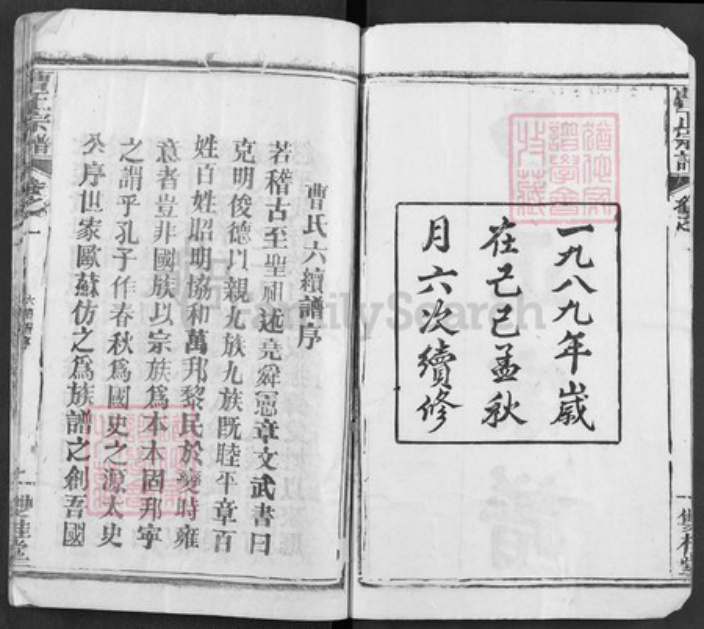 一九八九年歲
在己巳孟秋
月六次續修
曹氏宗譜
卷之
雙桂堂
曹氏六續譜序
若稽古至聖祖述堯舜憲章文武書曰
克明俊德以親九族九族既睦平章百
姓百姓昭明協和萬邦黎民於變時雍
意者豈非國族以宗族為本本固邦寧
之謂乎孔子作春秋為國史之源太史
公序世家歐蘇仿之為族譜之創吾國
曹氏宗譜
卷之一
六續譜序
一
雙桂堂
FamilySearch